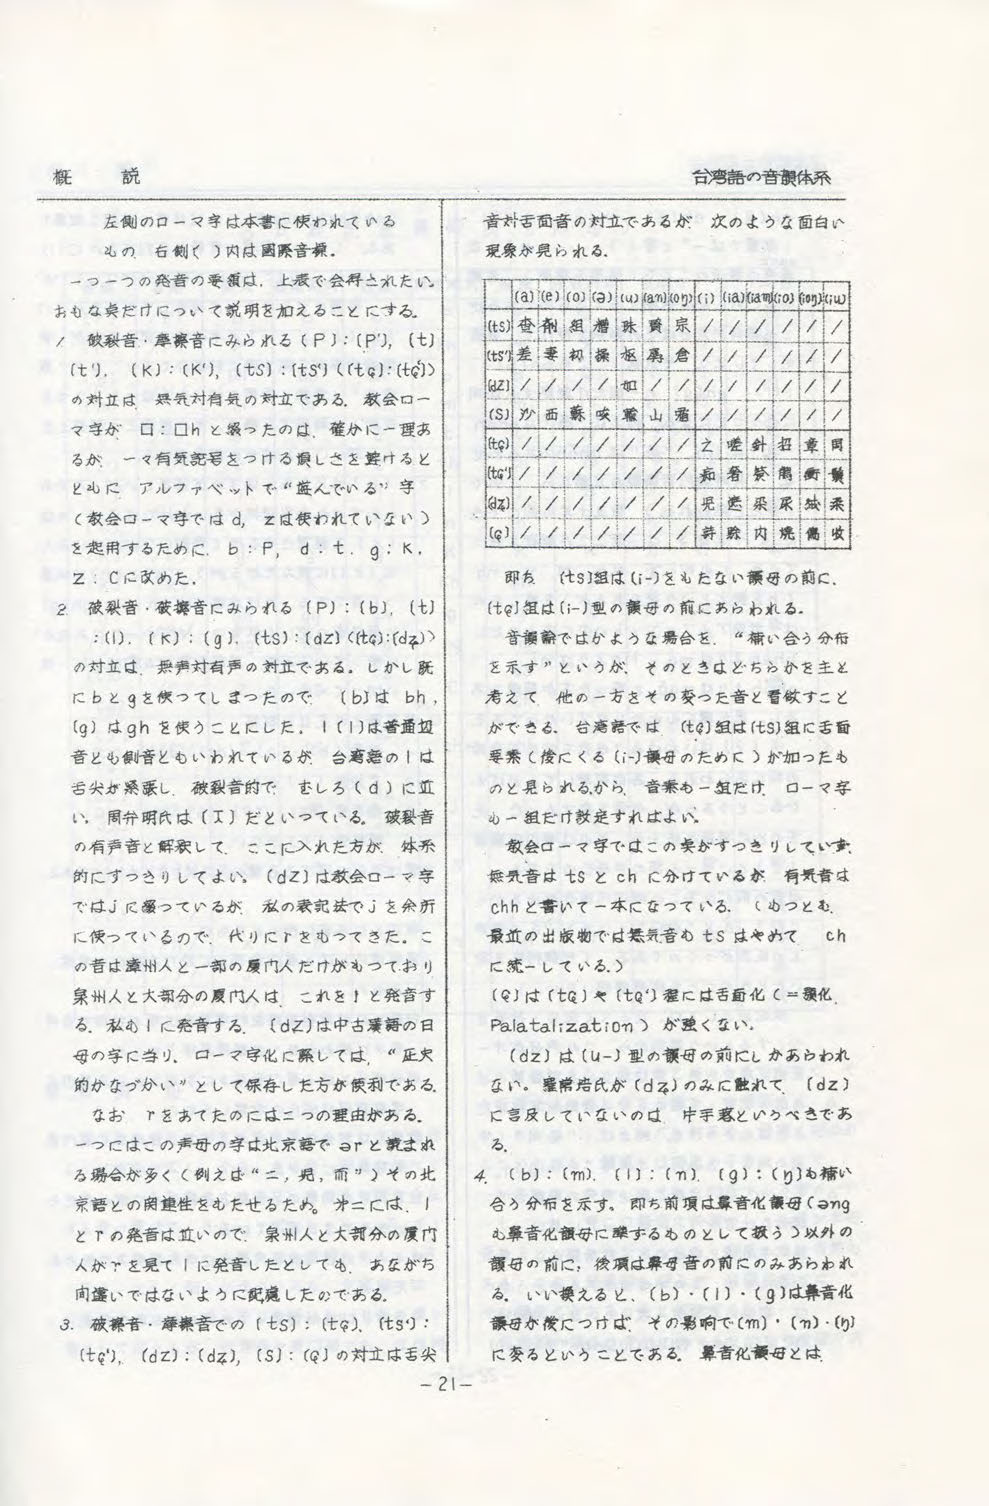 概　説
台湾語の音韻体系
左側のローマ字は本書に使われている
もの．右側〔 〕内は國際音標．
一つ一つの発音の要領は，上表で会得されたい。
おもな点だけについて説明を加えることにする。
1. 破裂音・摩擦音にみられる〔P〕:〔P'〕，〔t〕
〔t'〕，〔K〕:〔K'〕，〔tS〕:〔tS'〕(〔tɕ〕:〔tɕ'〕)
の対立は，無気対有気の対立である．教会ロー
マ字が 口：口h と綴ったのは，確かに一理あ
るが，一々有気記号をつける煩しさを避けると
ともに，アルファベットで“遊んでいる”字
(教会ローマ字では d，z は使われていない)
を起用するために，b：P，d：t．g：K，
Z：C に改めた．
2. 破裂音・破擦音にみられる〔P〕:〔b〕，〔t〕
:〔l〕，〔K〕:〔g〕．〔tS〕:〔dZ〕(〔tɕ〕:〔dʑ〕)
の対立は，無声対有声の対立である。しかし既
に b と g を使ってしまつたので，〔b〕は bh，
〔g〕は gh を使うことにした．l〔l〕は普通辺
音とも側音ともいわれているが，台湾語の l は
舌尖が緊張し，破裂音的で，むしろ〔d〕に近
い。周弁明氏は〔I〕だといつている。破裂音
の有声音と解釈して，ここに入れた方が，体系
的にすっきりしてよい。〔dZ〕は教会ローマ字
では j に綴っているが，私の表記法で j を余所
に使っているので，代りに r をもってきた。こ
の音は漳州人と一部の厦門人だけがもつており
泉州人と大部分の厦門人は，これを l と発音す
る．私も l に発音する．〔dZ〕は中古漢語の日
母の字に当り，ローマ字化に際しては，“正史
的かなづかい”として保存した方が便利である．
なお，r をあてたのには二つの理由がある．
一つにはこの声母の字は北京語で ər と読まれ
る場合が多く(例えば“二，児，而”)その北
京語との関連性をもたせるため。才二には，l
と r の発音は近いので，泉州人と大部分の厦門
人が r を見て l に発音したとしても，あながち
間違いではないように配慮したのである．
3. 破擦音・摩擦音での〔tS〕:〔tɕ〕，〔ts'〕:
〔tɕ'〕，〔dZ〕:〔dʑ〕，〔S〕:〔ɕ〕の対立は舌尖
音対舌面音の対立であるが，次のような面白い
現象が見られる．
〔a〕〔e〕〔o〕〔ə〕〔u〕〔an〕〔oŋ〕〔i〕〔ia〕〔iam〕〔io〕〔ioŋ〕〔iu〕
〔tS〕 查 劑 組 槽 珠 賛 宗 / / / / / /
〔tS'〕 差 妻 初 操 枢 孱 倉 / / / / / /
〔dZ〕 / / / / 如 / / / / / / / /
〔S〕 沙 西 蘇 咳 山 霜 / / / / / /
〔tɕ〕 / / / / / / / 之 嗟 針 招 章 周
〔tɕ'〕 / / / / / / / 痴 奢 衝
〔dʑ〕 / / / / / / / 児 遮 染 尿 絨 柔
〔ɕ〕 / / / / / / / 詩 賒 内 焼 傷 收
即ち，〔ts〕組は〔i-〕をもたない韻母の前に，
〔tɕ〕組は〔i-〕型の韻母の前にあらわれる。
音韻論ではかような場合を，“補い合う分布
を示す”というが，そのときはどちらかを主と
考えて，他の一方をその変つた音と看做すこと
ができる．台湾語では，〔tɕ〕組は〔tS〕組に舌面
要素(後にくる〔i-〕韻母のために)が加つたも
のと見られるから，音素も一組だけ，ローマ字
も一組だけ設定すればよい．
教会ローマ字ではこの点がすつきりしていず，
無気音は tS と ch に分けているが，有気音は
chh と書いて一本になっている．(もっとも，
最近の出版物では無気音も tS はやめて，ch
に統一している．)
〔ɕ〕は〔tɕ〕や〔tɕ'〕程には舌面化(=顎化，
Palatalization)が強くない。
〔dz〕は〔u-〕型の韻母の前にしかあらわれ
ない。羅常培氏が〔dʑ〕のみに触れて，〔dz〕
に言及していないのは，片手落というべきであ
る．
4. 〔b〕:〔m〕．〔l〕:〔n〕，〔g〕:〔ŋ〕も補い
合う分布を示す。即ち前項は鼻音化韻母(əng
も鼻音化韻母に準ずるものとして扱う)以外の
韻母の前に，後項は鼻母音の前にのみあらわれ
る．いい換えると，〔b〕・〔l〕・〔g〕は鼻音化
韻母が後につけば，その影響で〔m〕・〔n〕・〔ŋ〕
に変るということである．鼻音化韻母とは，
－21－